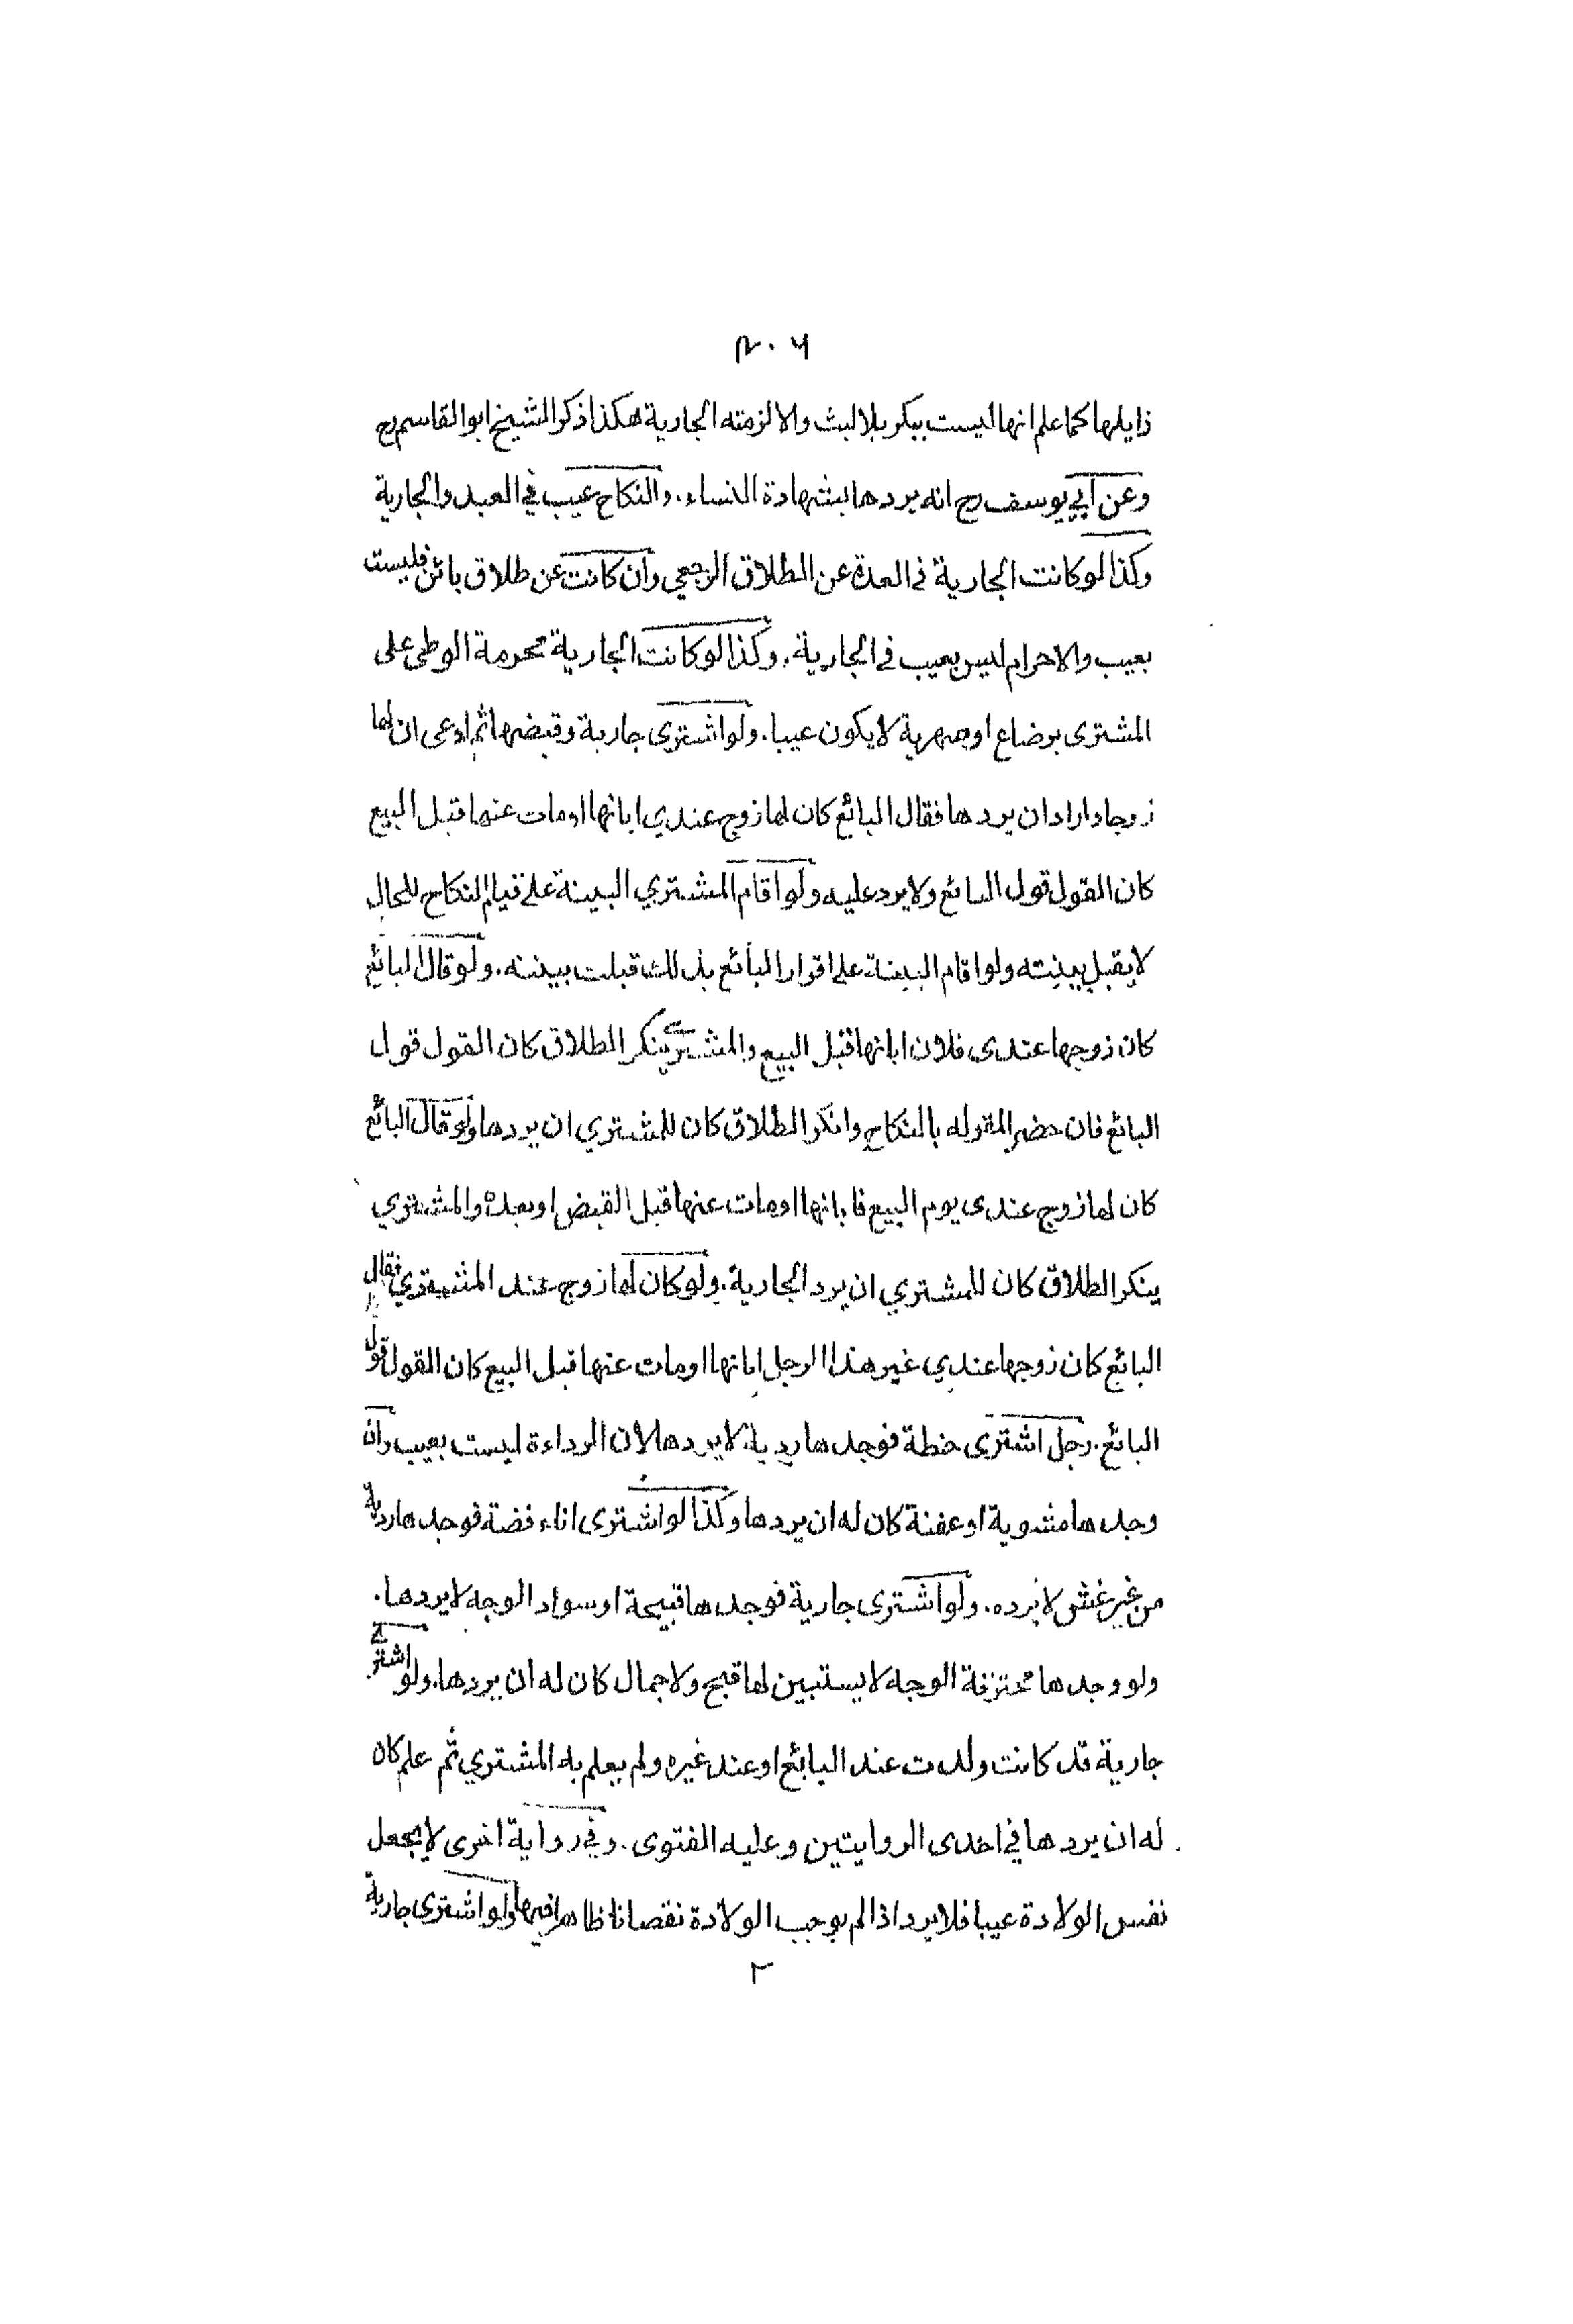 ٢٠٦
ذايلها كما علم انها ليست ببكر بلا لبث والا لزمته الجارية هكذا ذكر الشيخ ابو القاسم رح
وعن ابي يوسف رح انه يردها بشهادة النساء. والنكاح عيب في العبد والجارية
وكذا لو كانت الجارية في العدة عن الطلاق الرجعي وان كانت عن طلاق بائن فليست
بعيب والاحرام ليس بعيب في الجارية. وكذا لو كانت الجارية محرمة الوطى على
المشترى برضاع او صهرية لا يكون عيبا. ولو اشترى جارية وقبضها ثم ادعى ان لها
زوجا واراد ان يردها فقال البائع كان لها زوج عندي ابانها او مات عنها قبل البيع
كان القول قول البائع ولا يرد عليه ولو اقام المشتري البينة على قيام النكاح للحال
لا يقبل بينته ولو اقام البينة على اقرار البائع بذلك قبلت بينته. ولو قال البائع
كان زوجها عندى فلان ابانها قبل البيع والمشترى ينكر الطلاق كان القول قول
البائع فان حضر المقر له بالنكاح وانكر الطلاق كان للمشتري ان يردها ولو قال البائع
كان لها زوج عندى يوم البيع فابانها او مات عنها قبل القبض او بعده والمشتري
ينكر الطلاق كان للمشتري ان يرد الجارية. ولو كان لها زوج عند المشتري فقال
البائع كان زوجها عندي غير هذا الرجل ابانها او مات عنها قبل البيع كان القول قول
البائع. رجل اشترى حنطة فوجدها ردية لا يردها لان الرداءة ليست بعيب وان
وجدها مشوية او عفنة كان له ان يردها وكذا لو اشترى اناء فضة فوجدها ردية
من غير غش لا يرده. ولو اشترى جارية فوجدها قبيحة او سواد الوجه لا يردها.
ولو وجدها محترقة الوجه لا يستبين لها قبح ولا جمال كان له ان يردها. ولو اشترى
جارية قد كانت ولدت عند البائع او عند غيره ولم يعلم به المشتري ثم علم كان
له ان يردها في احدى الروايتين وعليه الفتوى. وفي رواية اخرى لا يجعل
نفس الولادة عيبا فلا يرد اذا لم يوجب الولادة نقصانا ظاهرا فيها ولو اشترى جارية
٢